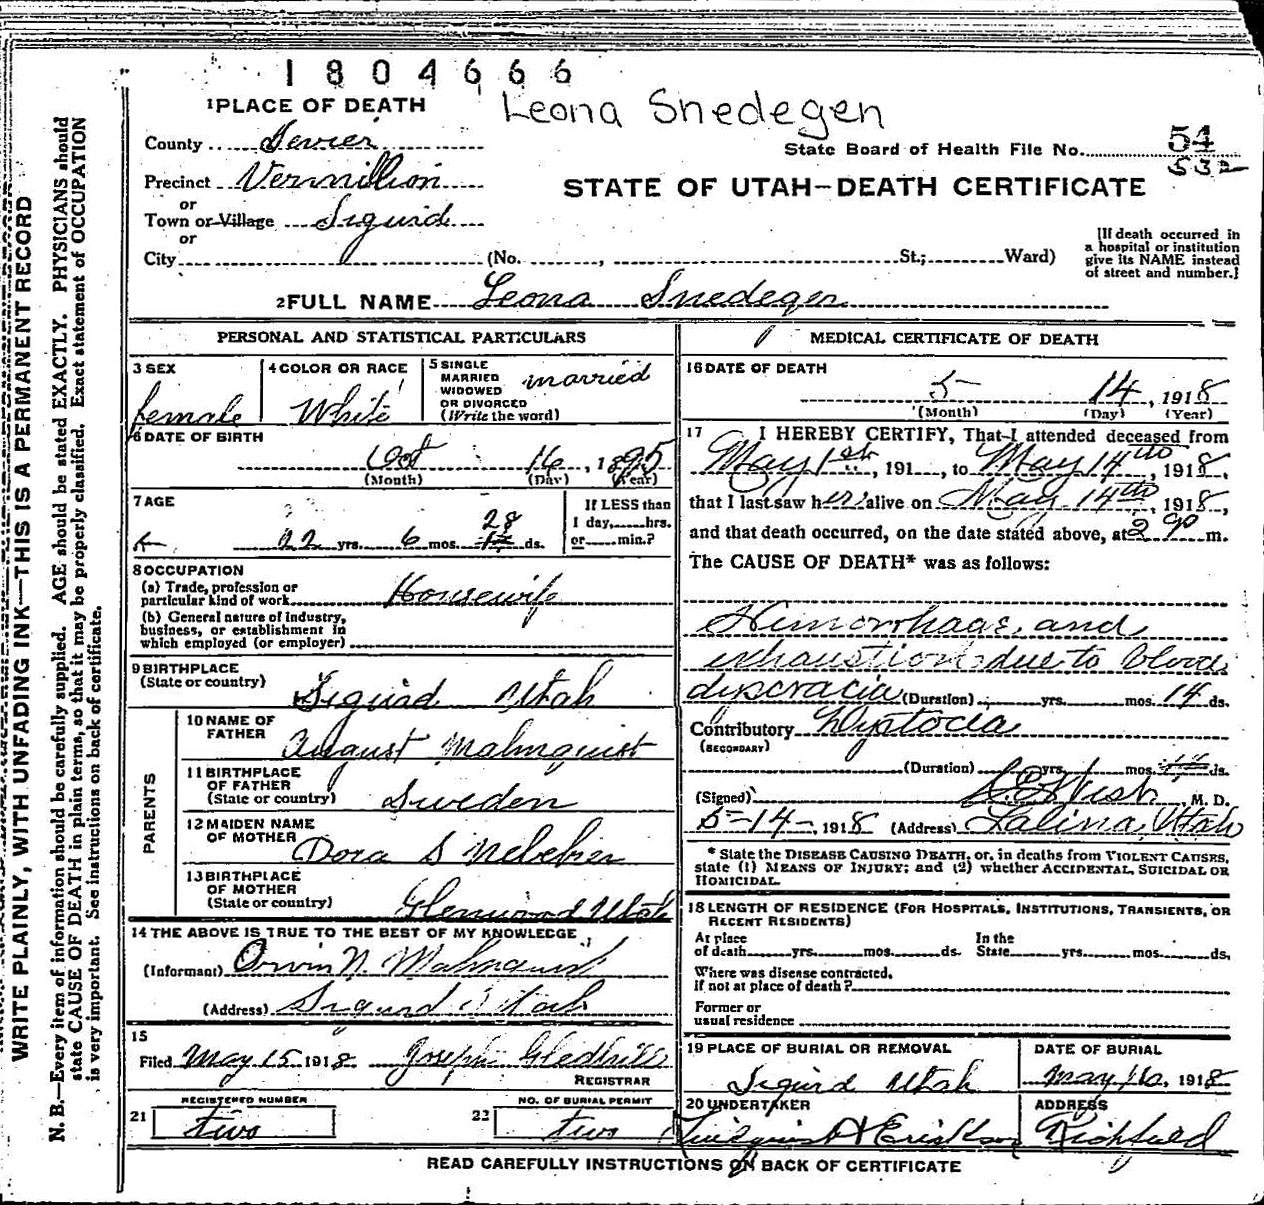 1804666
Leona Snedegen
1 PLACE OF DEATH
County Sevier
State Board of Health File No. 54
532
Precinct Vermillion
STATE OF UTAH—DEATH CERTIFICATE
or
Town or Village Sigurd
or
City (No. , St.; Ward)
[If death occurred in
a hospital or institution
give its NAME instead
of street and number.]
2 FULL NAME Leona Snedeger
PERSONAL AND STATISTICAL PARTICULARS
3 SEX
female
4 COLOR OR RACE
White
5 SINGLE
MARRIED
WIDOWED
OR DIVORCED
(Write the word)
married
6 DATE OF BIRTH
Oct 16, 1895
(Month) (Day) (Year)
7 AGE
28
22 yrs. 6 mos. ds.
If LESS than
1 day, hrs.
or min.?
8 OCCUPATION
(a) Trade, profession or
particular kind of work Housewife
(b) General nature of industry,
business, or establishment in
which employed (or employer)
9 BIRTHPLACE
(State or country)
Sigurd Utah
PARENTS
10 NAME OF
FATHER
August Malmquist
11 BIRTHPLACE
OF FATHER
(State or country) Sweden
12 MAIDEN NAME
OF MOTHER
Dora S
13 BIRTHPLACE
OF MOTHER
(State or country) Glenwood Utah
14 THE ABOVE IS TRUE TO THE BEST OF MY KNOWLEDGE
(Informant) Orvin N. Malmquist
(Address) Sigurd Utah
15
Filed May 15 1918 Joseph Gledhill
REGISTRAR
21 REGISTERED NUMBER
two
22 NO. OF BURIAL PERMIT
two
MEDICAL CERTIFICATE OF DEATH
16 DATE OF DEATH
5 14, 1918
(Month) (Day) (Year)
17 I HEREBY CERTIFY, That I attended deceased from
May 1st, 191 , to May 14th, 1918,
that I last saw her alive on May 14th, 1918,
and that death occurred, on the date stated above, at 2 m.
The CAUSE OF DEATH* was as follows:
Hemorrhage, and
exhaustion due to blood
dyscracia (Duration) yrs. mos. 14 ds.
Contributory Dystocia
(SECONDARY)
(Duration) yrs. mos. ds.
(Signed) West, M. D.
5-14-, 1918 (Address) Salina, Utah
* State the DISEASE CAUSING DEATH, or, in deaths from VIOLENT CAUSES,
state (1) MEANS OF INJURY; and (2) whether ACCIDENTAL, SUICIDAL OR
HOMICIDAL.
18 LENGTH OF RESIDENCE (FOR HOSPITALS, INSTITUTIONS, TRANSIENTS, OR
RECENT RESIDENTS)
At place In the
of death yrs. mos. ds. State yrs. mos. ds.
Where was disease contracted,
if not at place of death?
Former or
usual residence
19 PLACE OF BURIAL OR REMOVAL
Sigurd Utah
DATE OF BURIAL
May 16, 1918
20 UNDERTAKER
ADDRESS
Richfield
READ CAREFULLY INSTRUCTIONS ON BACK OF CERTIFICATE
WRITE PLAINLY, WITH UNFADING INK—THIS IS A PERMANENT RECORD
N. B.—Every item of information should be carefully supplied. AGE should be stated EXACTLY. PHYSICIANS should
state CAUSE OF DEATH in plain terms, so that it may be properly classified. Exact statement of OCCUPATION
is very important. See instructions on back of certificate.